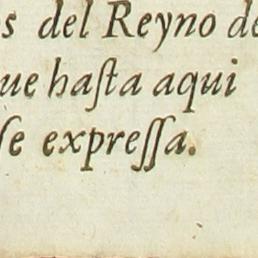 s del Reyno de
ue haſta aqui
ſe expreſſa.